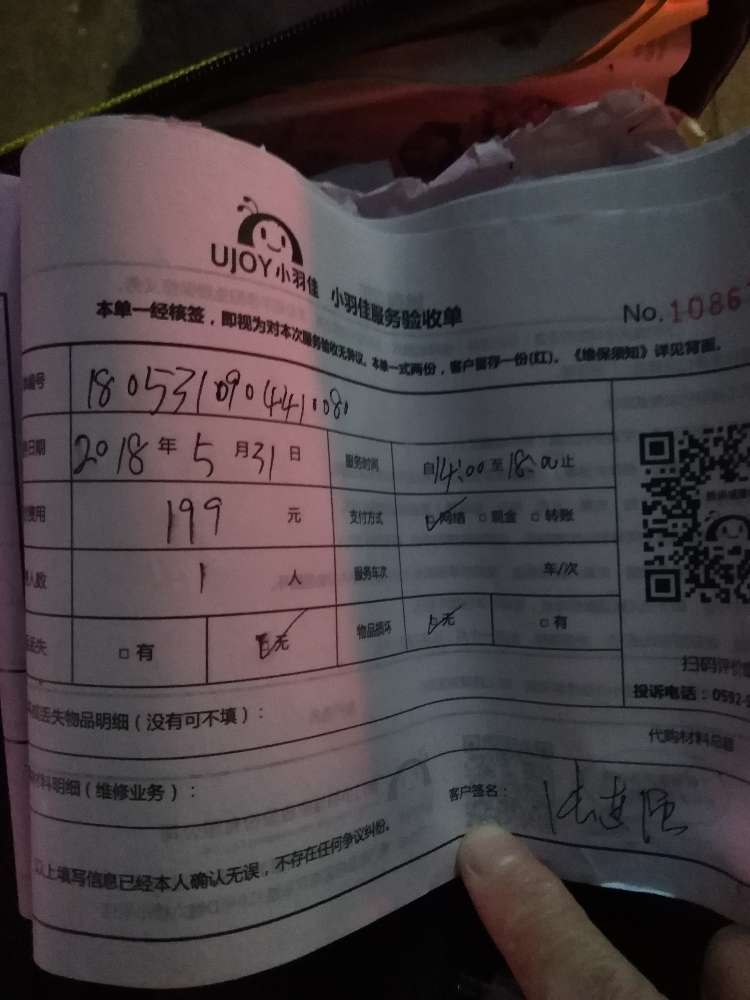 UJOY小羽佳 小羽佳服务验收单
No.1086
本单一经核签，即视为对本次服务验收无异议。本单一式两份，客户留存一份(红)。《维保须知》详见背面。
编号 180531090441080
日期 2018年5月31日 服务时间 自14:00至18:00止
费用 199元 支付方式 网络 现金 转账
人数 1人 服务车次 车/次
丢失 有 无 物品损坏 无 有
扫码评价
投诉电话：0592-
丢失物品明细（没有可不填）：
代购材料总额
材料明细（维修业务）：
客户签名：
以上填写信息已经本人确认无误，不存在任何争议纠纷。